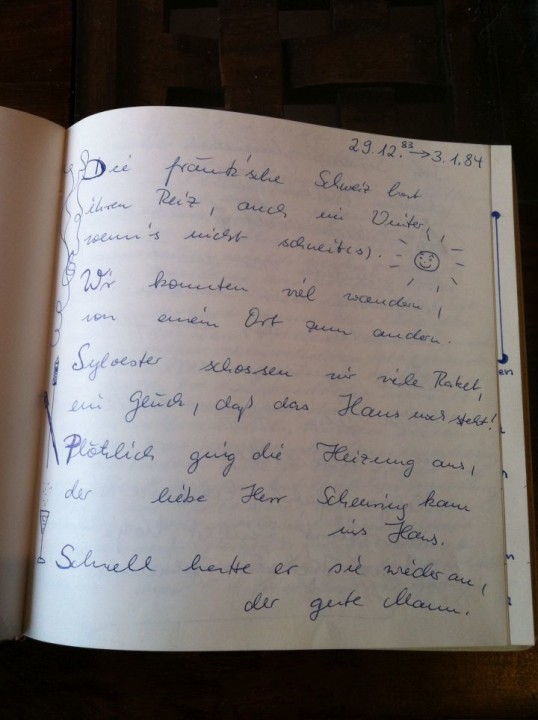 29.12.83 → 3.1.84
Die fränk'sche Schweiz hat
ihren Reiz, auch im Winter,
wenn's nicht schneit(s).
Wir konnten viel wandern,
von einem Ort zum andern.
Sylvester schossen wir viele Raket,
ein Glück, daß das Haus noch steht!
Plötzlich ging die Heizung aus,
der liebe Herr Scheuring kam
ins Haus.
Schnell heizte er sie wieder an,
der gute Mann.
en